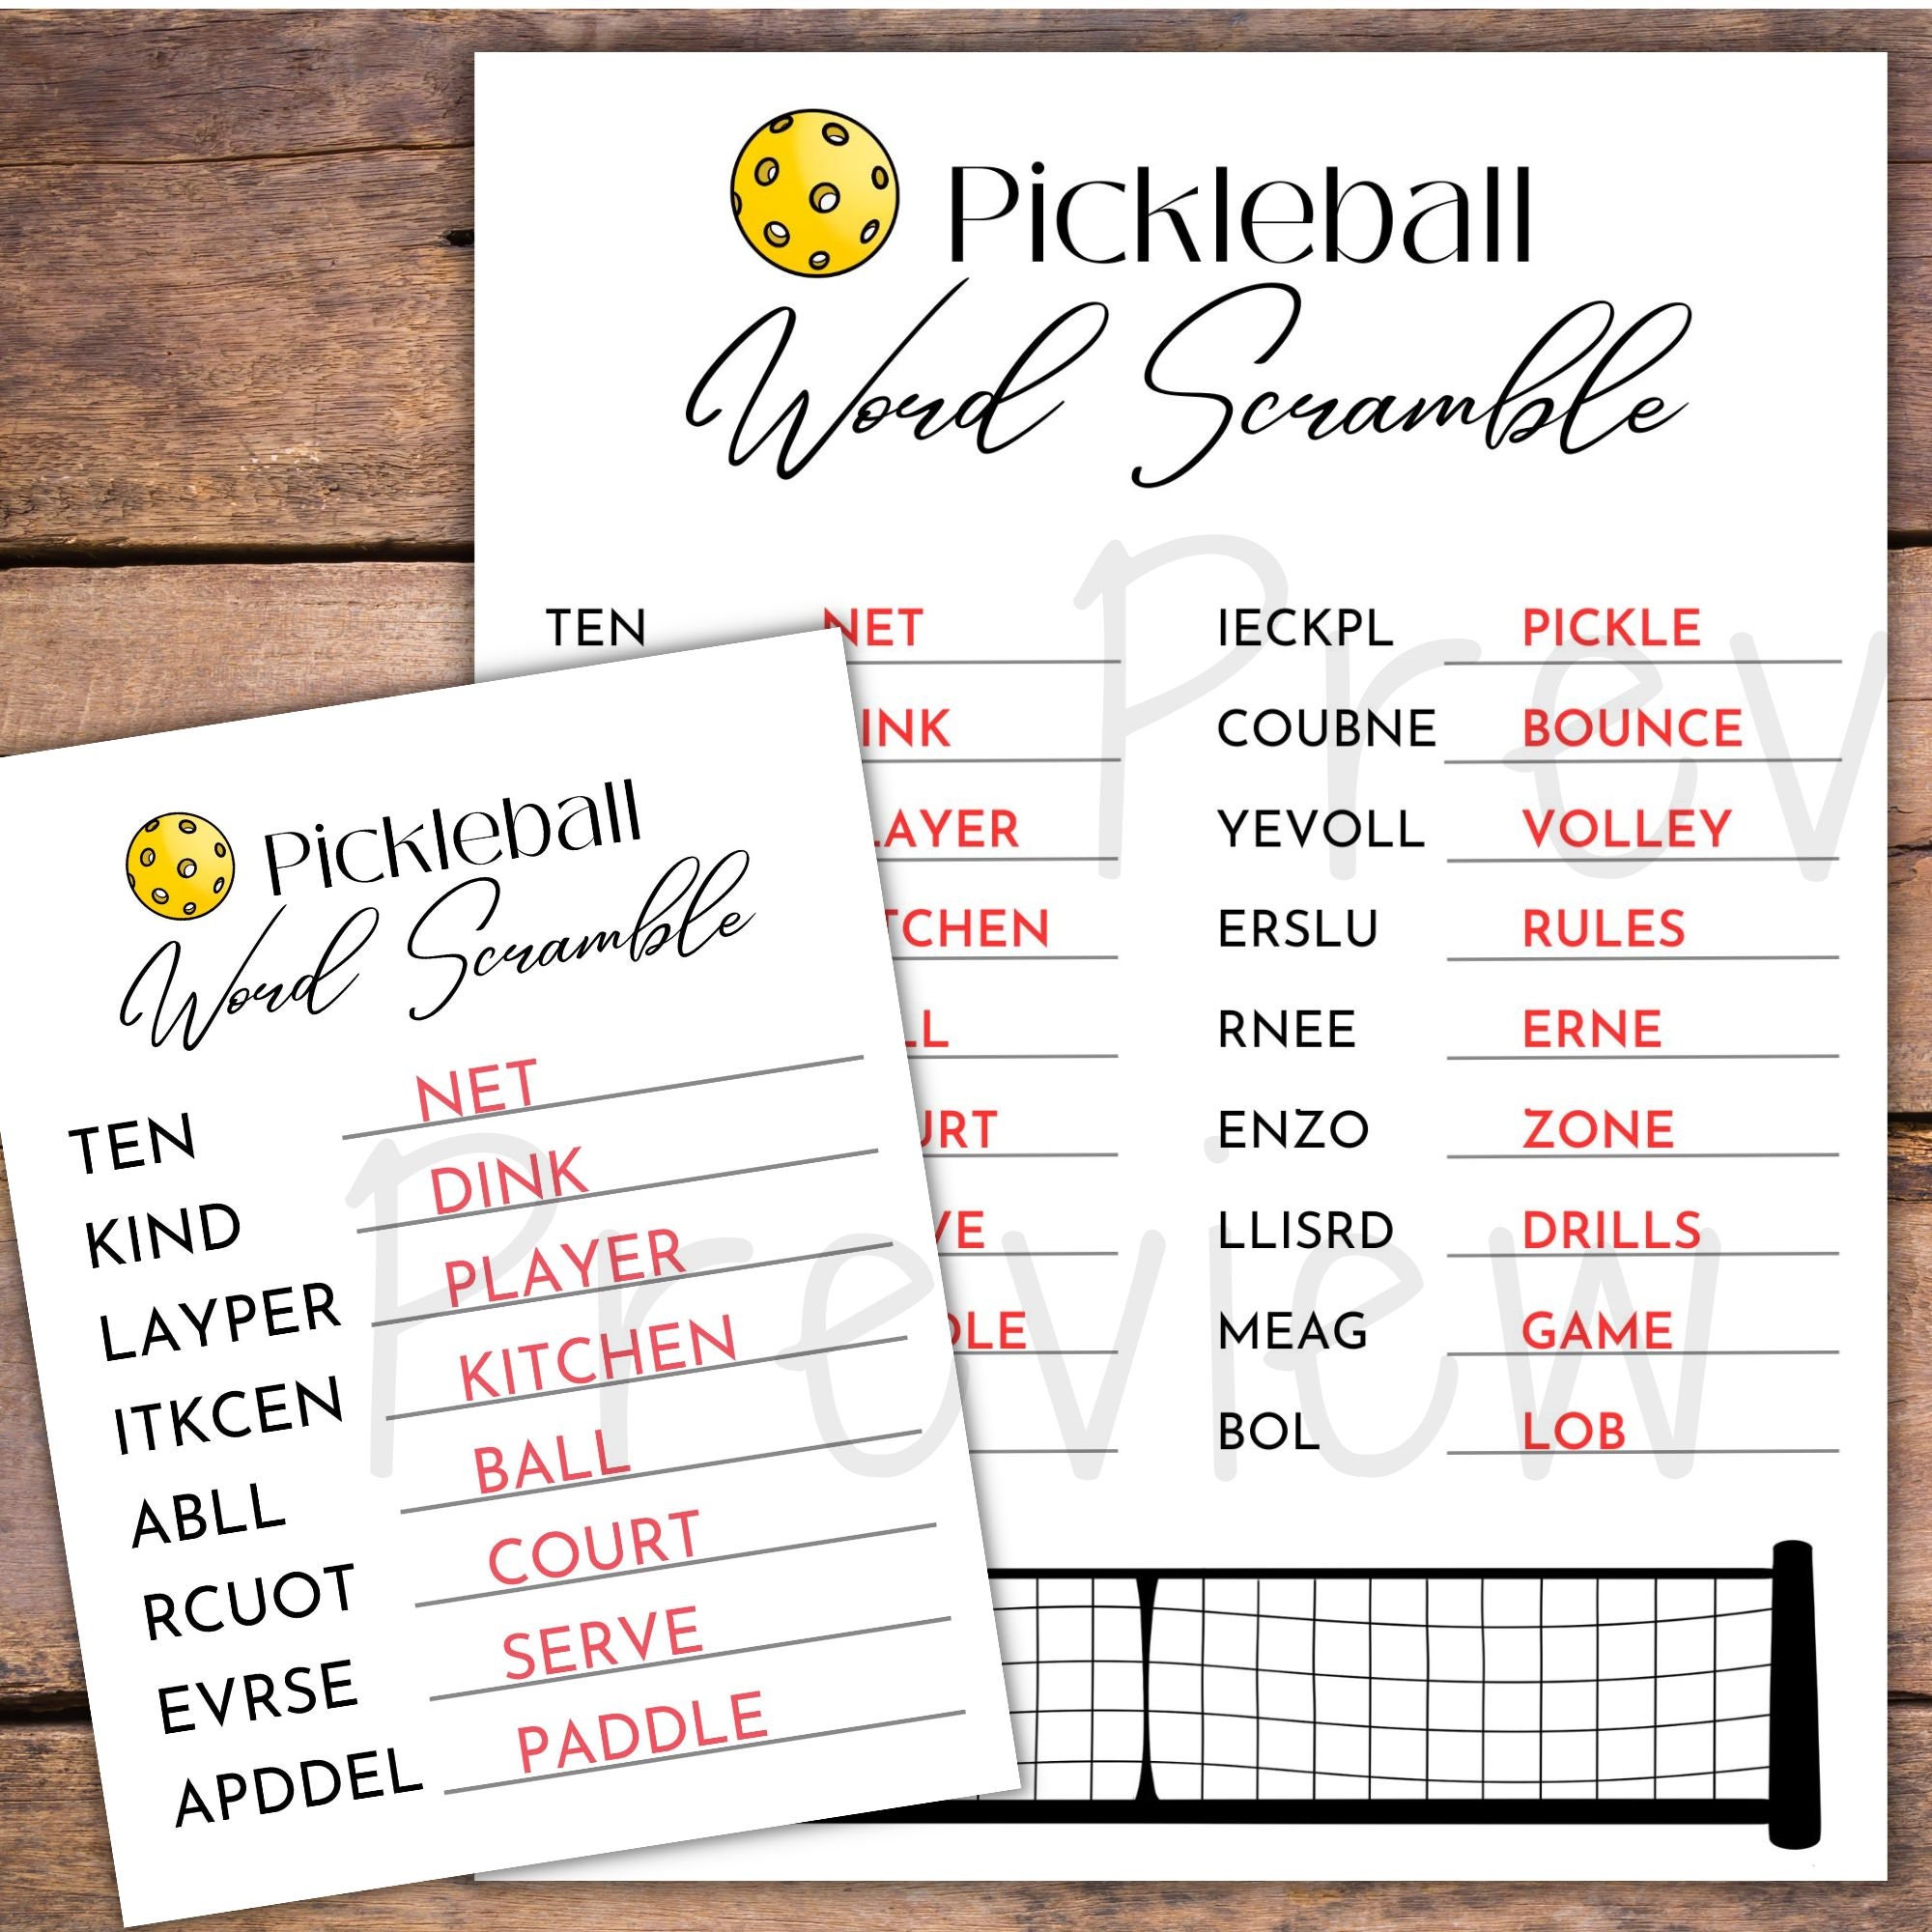 Pickleball
Word Scramble
TEN NET IECKPL PICKLE
INK COUBNE BOUNCE
AYER YEVOLL VOLLEY
TCHEN ERSLU RULES
LL RNEE ERNE
URT ENZO ZONE
VE LLISRD DRILLS
DLE MEAG GAME
BOL LOB
Prev
Preview
Pickleball
Word Scramble
TEN NET
KIND DINK
LAYPER PLAYER
ITKCEN KITCHEN
ABLL BALL
RCUOT COURT
EVRSE SERVE
APDDEL PADDLE